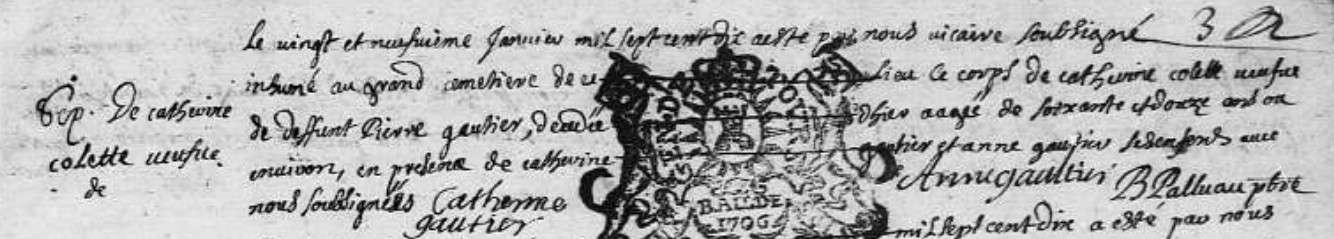 Le vingt et neufvième Janvier mil sept cent dix a esté par nous vicaire soubsigné
inhumé au grand cemetiere de ce lieu le corps de catherine colette veufve
de deffunt Pierre gautier, decedée d'hier aagé de soixante et douze ans ou
environ, en presence de catherine gautier et anne gautier ses enfents avec
nous soubsignées Catherine gautier Anne gaultier B Palluau pbre
Sep. De catherine
colette veufve
de
BAIL DE
1706
mil sept cent dix a esté par nous